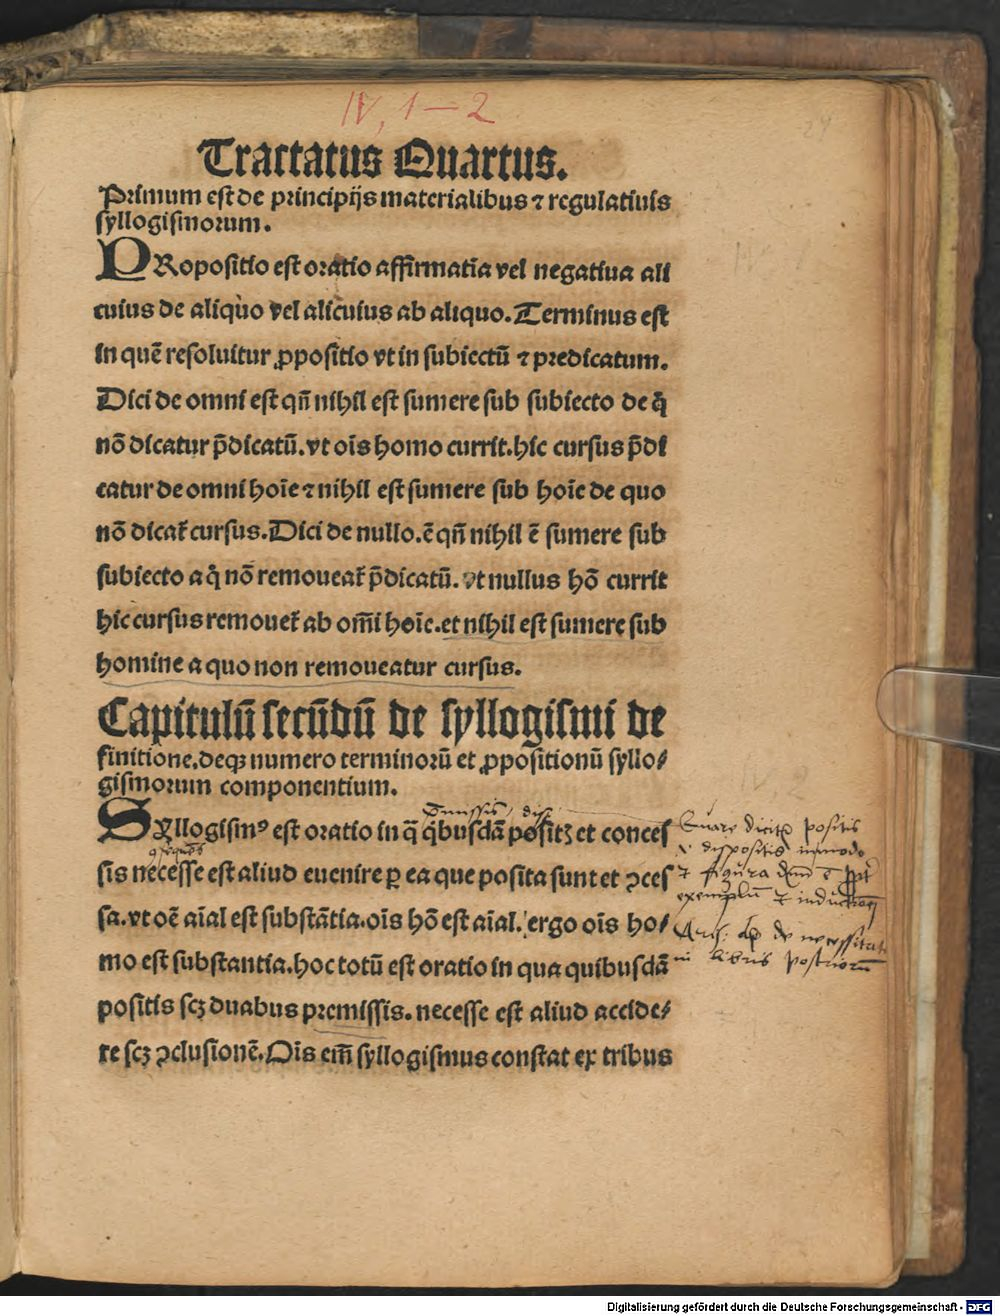 IV, 1–2
24
Tractatus Quartus.
Primum est de principijs materialibus ⁊ regulatiuis
syllogismorum.
PRopositio est oratio affirmatia vel negatiua ali
cuius de aliquo vel alicuius ab aliquo. Terminus est
in quē resoluitur ꝓpositio vt in subiectū ⁊ predicatum.
Dici de omni est qn̄ nihil est sumere sub subiecto de q̄
nō dicatur p̄dicatū. vt oīs homo currit. hic cursus p̄di
catur de omni hoīe ⁊ nihil est sumere sub hoīe de quo
nō dicat̄ cursus. Dici de nullo. ē qn̄ nihil ē sumere sub
subiecto a q̊ nō remoueat̄ p̄dicatū. vt nullus hō currit
hic cursus remouet̄ ab om̄i hoīe. et nihil est sumere sub
homine a quo non remoueatur cursus.
Capitulū secūdū de syllogismi de
finitione. deqꝫ numero terminorū et ꝓpositionū syllo⸗
gismorum componentium.
SYllogismꝰ est oratio in q̄ q̇busdā positꝫ et conces
sis necesse est aliud euenire ꝑ ea que posita sunt et ꝯces
sa. vt oē aīal est substātia. oīs hō est aīal. ergo oīs ho⸗
mo est substantia. hoc totū est oratio in qua quibusdā
positis scꝫ duabus premissis. necesse est aliud accide⸗
re scꝫ ꝯclusionē. Oīs em̄ syllogismus constat ex tribus
IV, 2
Quare dicit positis
dispositis in modo
⁊ figura
exemplū ⁊
de necessitate
in libris posteriorū
Digitalisierung gefördert durch die Deutsche Forschungsgemeinschaft - DFG